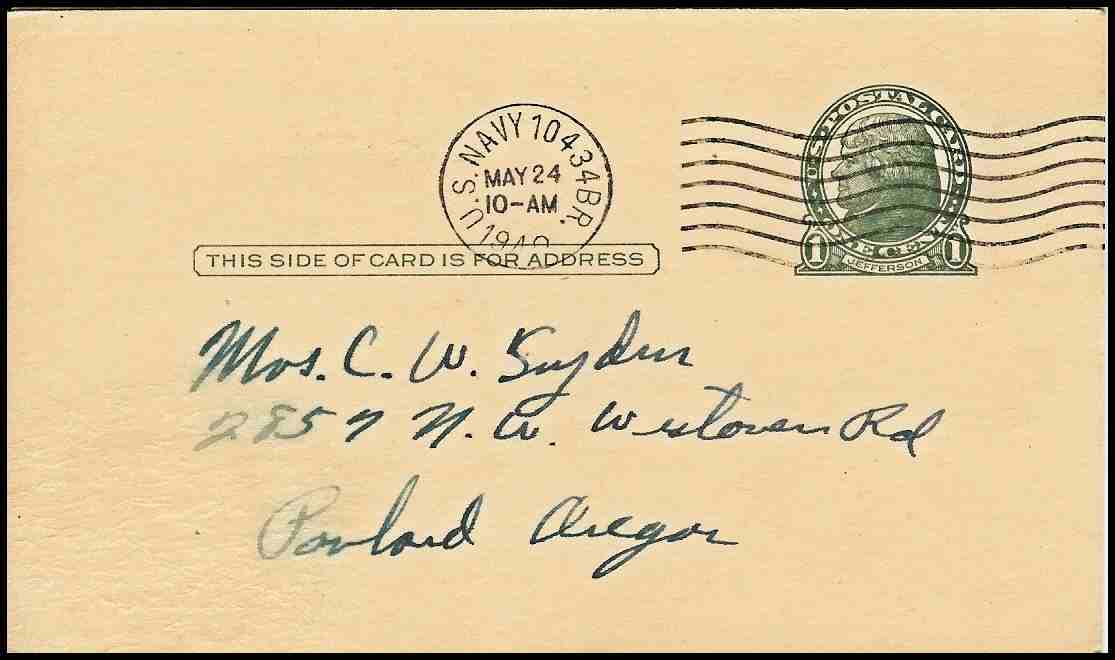 U.S. NAVY 10434 BR.
MAY 24
10-AM
1949
U.S. POSTAL CARD
ONE CENT
1 JEFFERSON 1
THIS SIDE OF CARD IS FOR ADDRESS
Mrs. C. W. Snyder
2857 N. W. Westover Rd
Portland Oregon